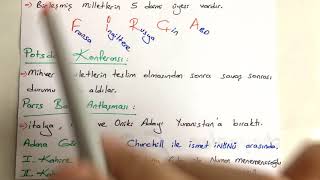 → Birleşmiş milletlerin 5 daimi üyesi vardır.
F İ R Ç A
Fransa İngiltere Rusya Çin ABD
Konferansı:
→ Mihver teslim olmasından sonra savaş sonrası
durumu aldılar.
Paris Antlaşması:
→ italya, ve Oniki Adayı Yunanistan'a bıraktı.
Adana Churchill ile ismet inönü arasında.
I. Kahire ile Numan menemencioğlu
II. Kahire